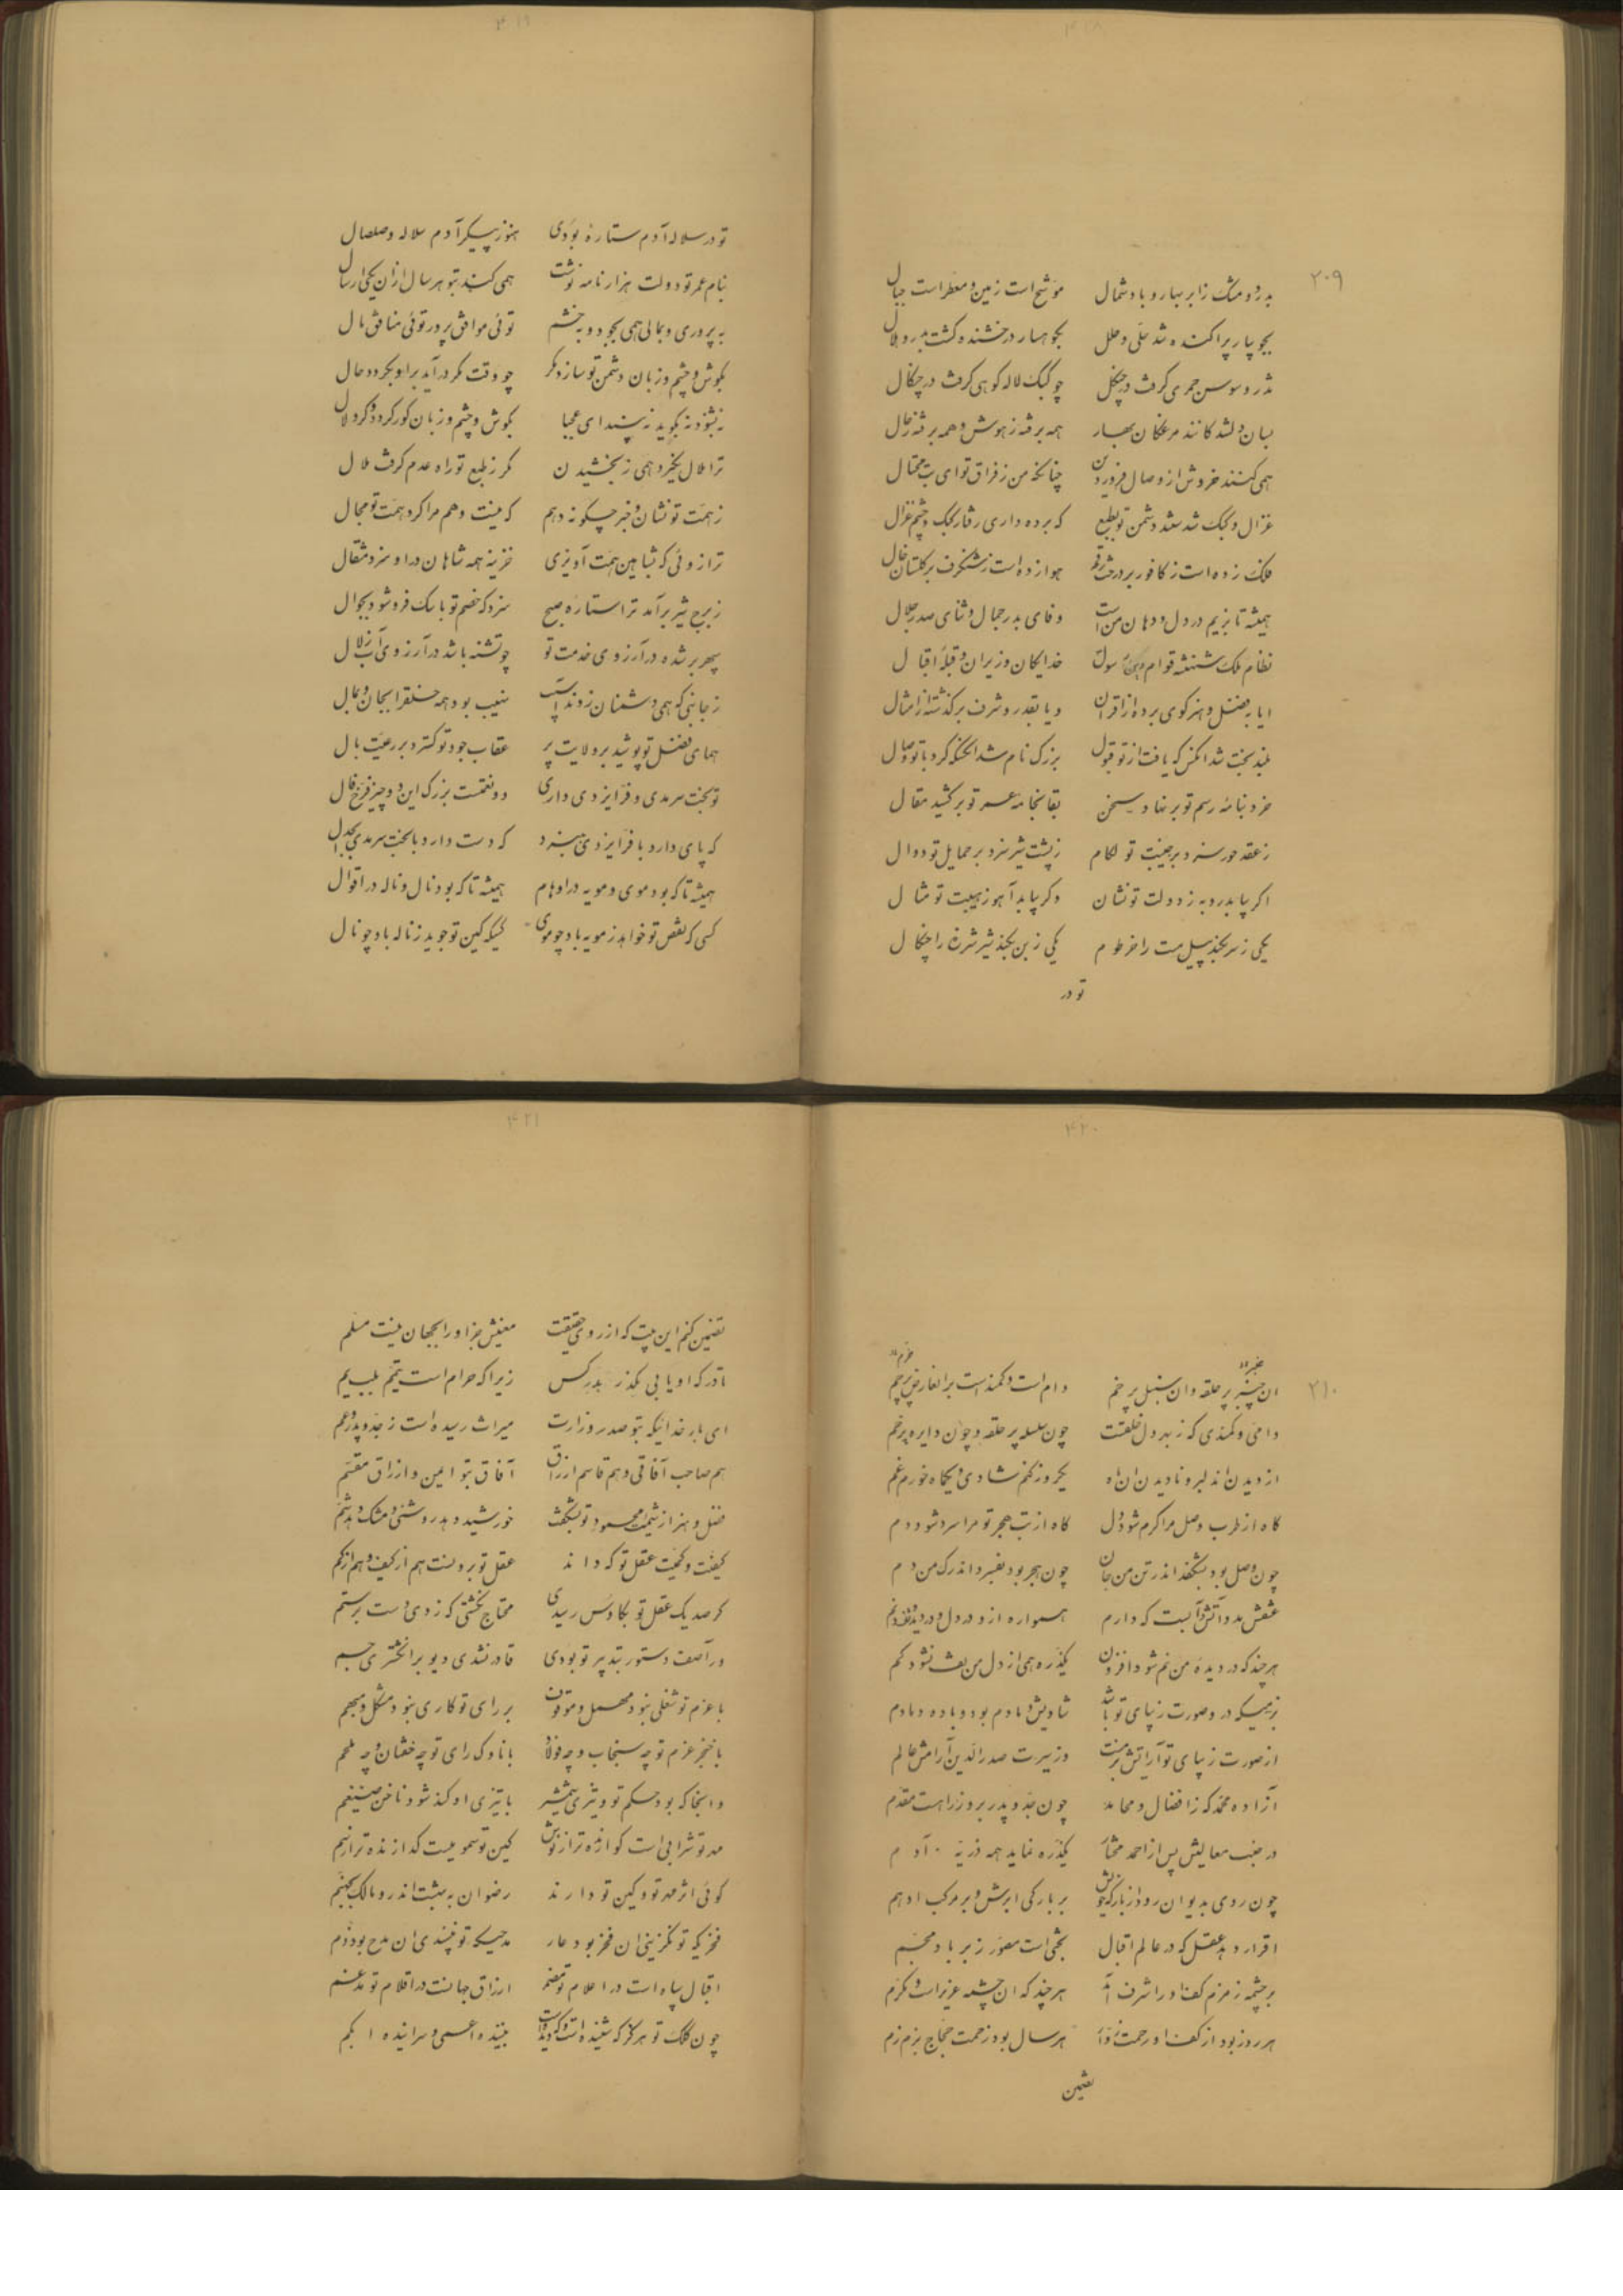 ۴۱۸
۲۰۹
بدر و مشک ز ابر بهار و باد شمال موشح است زمین و معطر است جبال
بجویبار پراکنده شد حلی و حلل بجوهسار درخشنده گشت بدر و هلال
تذرو سوسن حمری گرفت در چنگل چو کبک لاله کوهی گرفت در چنگال
بسان دلشدکانند مرغکان بهار همه برفته ز هوش و همه برفته ز حال
همی کنند خروش از وصال فروردین چنانکه من ز فراق تو ای بت محتال
غزال و کبک شد ستند دشمن تو بطبع که برده داری رفتار کبک و چشم غزال
فلک زده است ز کافور بر درخت رقم هوا زده است ز شنگرف بر گلستان خال
همیشه تا بزیم در دل و دهان من است وفای بدر جمال و ثنای صدر جلال
نظام ملک شهنشه قوام دین رسول خدایگان وزیران و قبله اقبال
ایا بفضل و هنر گوی برده از اقران و یا بقدر و شرف برگذشته از امثال
بلند بخت شد آنکس که یافت از تو قبول بزرگ نام شد آنکس که کرد با تو وصال
خرد بنامه رسم تو بر نهاد سخن بقا بخامه عمر تو بر کشید مقال
ز عقد حور سزد بر جنیبت تو لگام ز پشت شیر سزد بر حمایل تو دوال
اگر بیابد روبه ز دولت تو نشان وگر بیابد آهو ز هیبت تو مثال
یکی ز سر بکند پیل مست را خرطوم یکی ز بن بکند شیر شرزه را چنگال
تو در
۴۱۹
تو در سلاله آدم ستاره بودی هنوز پیکر آدم سلاله و صلصال
بنام عمر تو دولت هزار نامه نوشت همی کند بتو هر سال ازان یکی ارسال
بپروری و بمالی همی بجود و بخشم توئی موافق پرور توئی منافق مال
بگوش و چشم و زبان دشمن تو سازد مکر چو وقت مکر درآید بر او بگردد حال
نه بشنود نه بگوید نه بیند ای عجبا بگوش و چشم و زبان کور گردد و کر و لال
ترا ملال نگیرد همی ز بخشیدن مگر ز طبع تو راه عدم گرفت ملال
ز همت تو نشان و خبر چگونه دهم که نیست وهم مرا گرد همت تو مجال
ترازوئی که بشاهین همت آویزی خزینه همه شاهان در او سزد مثقال
ز برج شیر برآمد ترا ستاره صبح سزد که خصم تو با سگ فرو شود بجوال
سپهر بر شده در آرزوی خدمت تو چو تشنه باشد در آرزوی آب زلال
ز جانبی که همی دشمنان زدند اسب نهیب بود همه خلق را بجان و بمال
همای فضل تو پوشید بر ولایت پر عقاب جود تو گسترد بر رعیت بال
تو بخت سرمدی و فر ایزدی داری دو نعمتست بزرگ این دو چیز فرخ فال
که پای دارد با فر ایزدی بنبرد که دست دارد با بخت سرمدی بجدال
همیشه تا که بود موی و مویه در اوهام همیشه تا که بود نال و ناله در اقوال
کسی که نقص تو خواهد ز مویه باد چو موی کسیکه کین تو جوید ز ناله باد چو نال
۴۲۰
۲۱۰
ان چنبر پر حلقه و ان سنبل پر خم دام است و کمند است بر ان عارض خرم
دامی و کمندی که ز بهر دل خلقست چون سلسله پر حلقه و چون دایره پر خم
از دیدن ان دلبر و نادیدن ان ماه یکروز کنم شادی و یکماه خورم غم
گاه از طرب وصل مرا گرم شود دل گاه از تب هجر تو مرا سرد شود دم
چون وصل بود بشکفد اندر تن من جان چون هجر بود بفسرد اندر رگ من دم
عشقش مدد آتش و آبست که دارم همواره ازو در دل و در دیده تف و نم
هر چند که در دیده من نم شود افزون یکذره همی از دل من تف نشود کم
بزمیکه در و صورت زیبای تو باشد شادیش دمادم بود و باده دمادم
از صورت زیبای تو آرایش بزمست وز سیرت صدرالدین آرامش عالم
آزاده محمد که ز افضال و محامد چون جد و پدر بر وزرا هست مقدم
در جنب معالیش پس از احمد مختار یکذره نماید همه ذریه آدم
چون روی بدیوان رود از بارگه خویش بر بارگی ابرش و بر مرکب ادهم
اقرار دهد عقل که در عالم اقبال بختی است مصور ز بر باد مجسم
بر چشمه زمزم کف او را شرف آمد هر چند که ان چشمه عزیز است و مکرم
هر روز بود از کف او رحمت زوار هر سال بود زحمت حجاج بزمزم
تضمین
۴۲۱
تضمین کنم این بیت که از روی حقیقت معنیش جز او را بجهان نیست مسلم
نادر که او یابی مگذر بدر کس زیرا که حرام است تیمم بلب یم
ای بار خدائیکه بتو صدر وزارت میراث رسیده است ز جد و پدر و عم
هم صاحب آفاقی و هم قاسم ارزاق آفاق بتو ایمن و ارزاق مقسم
فضل و هنر از شیمت محمود تو بشکفت خورشید دهد روشنی و مشک دهد شم
کیفیت و کمیت عقل تو که داند عقل تو برونست هم از کیف و هم از کم
گر صد یک عقل تو بکاوس رسیدی محتاج نگشتی که زدی دست برستم
ور آصف دستور بتدبیر تو بودی قادر نشدی دیو بر انگشتری جم
با عزم تو شغلی نبود مهمل و موقوف بر رای تو کاری نبود مشکل و مبهم
با خنجر عزم تو چه سنجاب و چه فولاد با ناوک رای تو چه خفتان و چه ملحم
و انجا که بود حکم تو و تیزی شمشیر با تیزی او کند شود ناخن ضیغم
مهر تو شرابی است کو انده تر از نوش کین تو سمومیست گدازنده تر از سم
گوئی اثر مهر تو و کین تو دارند رضوان ببهشت اندر و مالک بجهنم
فخریکه تو نگزینی ان فخر بود عار مدحیکه تو نپسندی ان مدح بود ذم
اقبال سپاه است در اعلام تو مضمر ارزاق جهانست در اقلام تو مدغم
چون کلک تو هرگز که شنیده است و که دیده است بیننده اعمی و سراینده ابکم